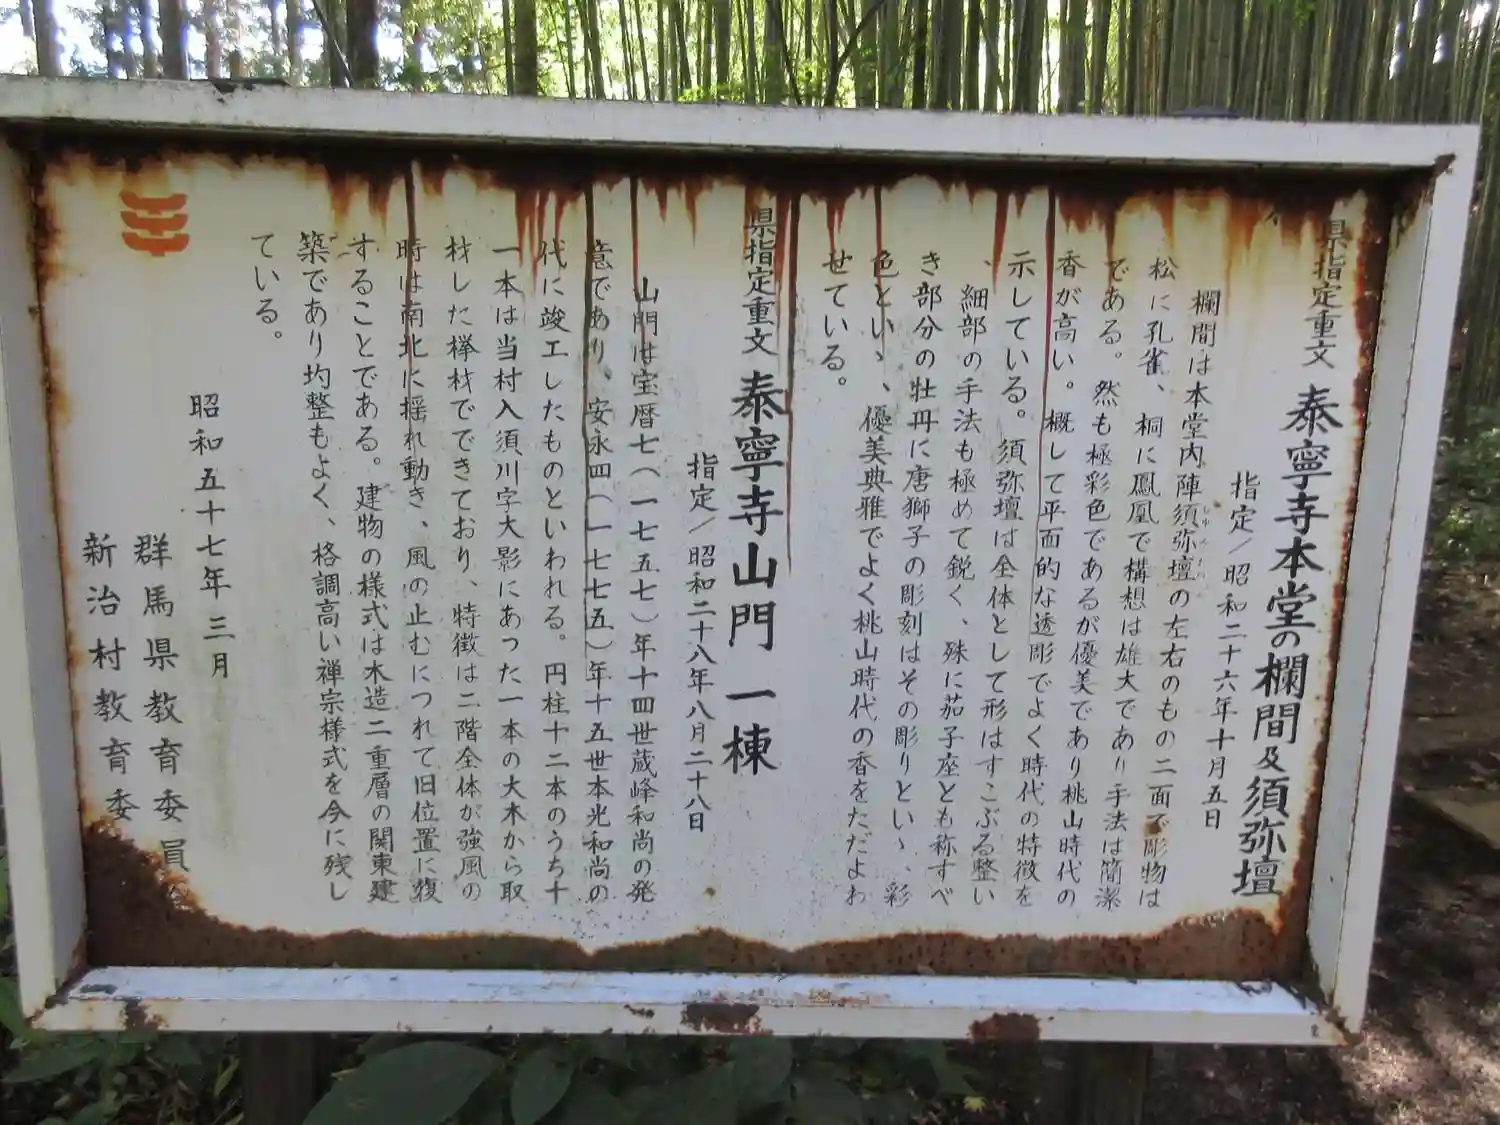 県指定重文 泰寧寺本堂の欄間及須弥壇
指定／昭和二十六年十月五日
欄間は本堂内陣須弥壇の左右のもの二面で彫物は
松に孔雀、桐に鳳凰で構想は雄大であり手法は簡潔
である。然も極彩色であるが優美であり桃山時代の
香が高い。概して平面的な透彫でよく時代の特徴を
示している。須弥壇は全体として形はすこぶる整い
、細部の手法も極めて鋭く、殊に茄子座とも称すべ
き部分の牡丹に唐獅子の彫刻はその彫りといゝ、彩
色といゝ、優美典雅でよく桃山時代の香をただよわ
せている。
県指定重文 泰寧寺山門 一棟
指定／昭和二十八年八月二十八日
山門は宝暦七（一七五七）年十四世蔵峰和尚の発
意であり、安永四（一七七五）年十五世本光和尚の
代に竣工したものといわれる。円柱十二本のうち十
一本は当村入須川字大影にあった一本の大木から取
材した欅材でできており、特徴は二階全体が強風の
時は南北に揺れ動き、風の止むにつれて旧位置に復
することである。建物の様式は木造二重層の関東建
築であり均整もよく、格調高い禅宗様式を今に残し
ている。
昭和五十七年三月
群馬県教育委員
新治村教育委